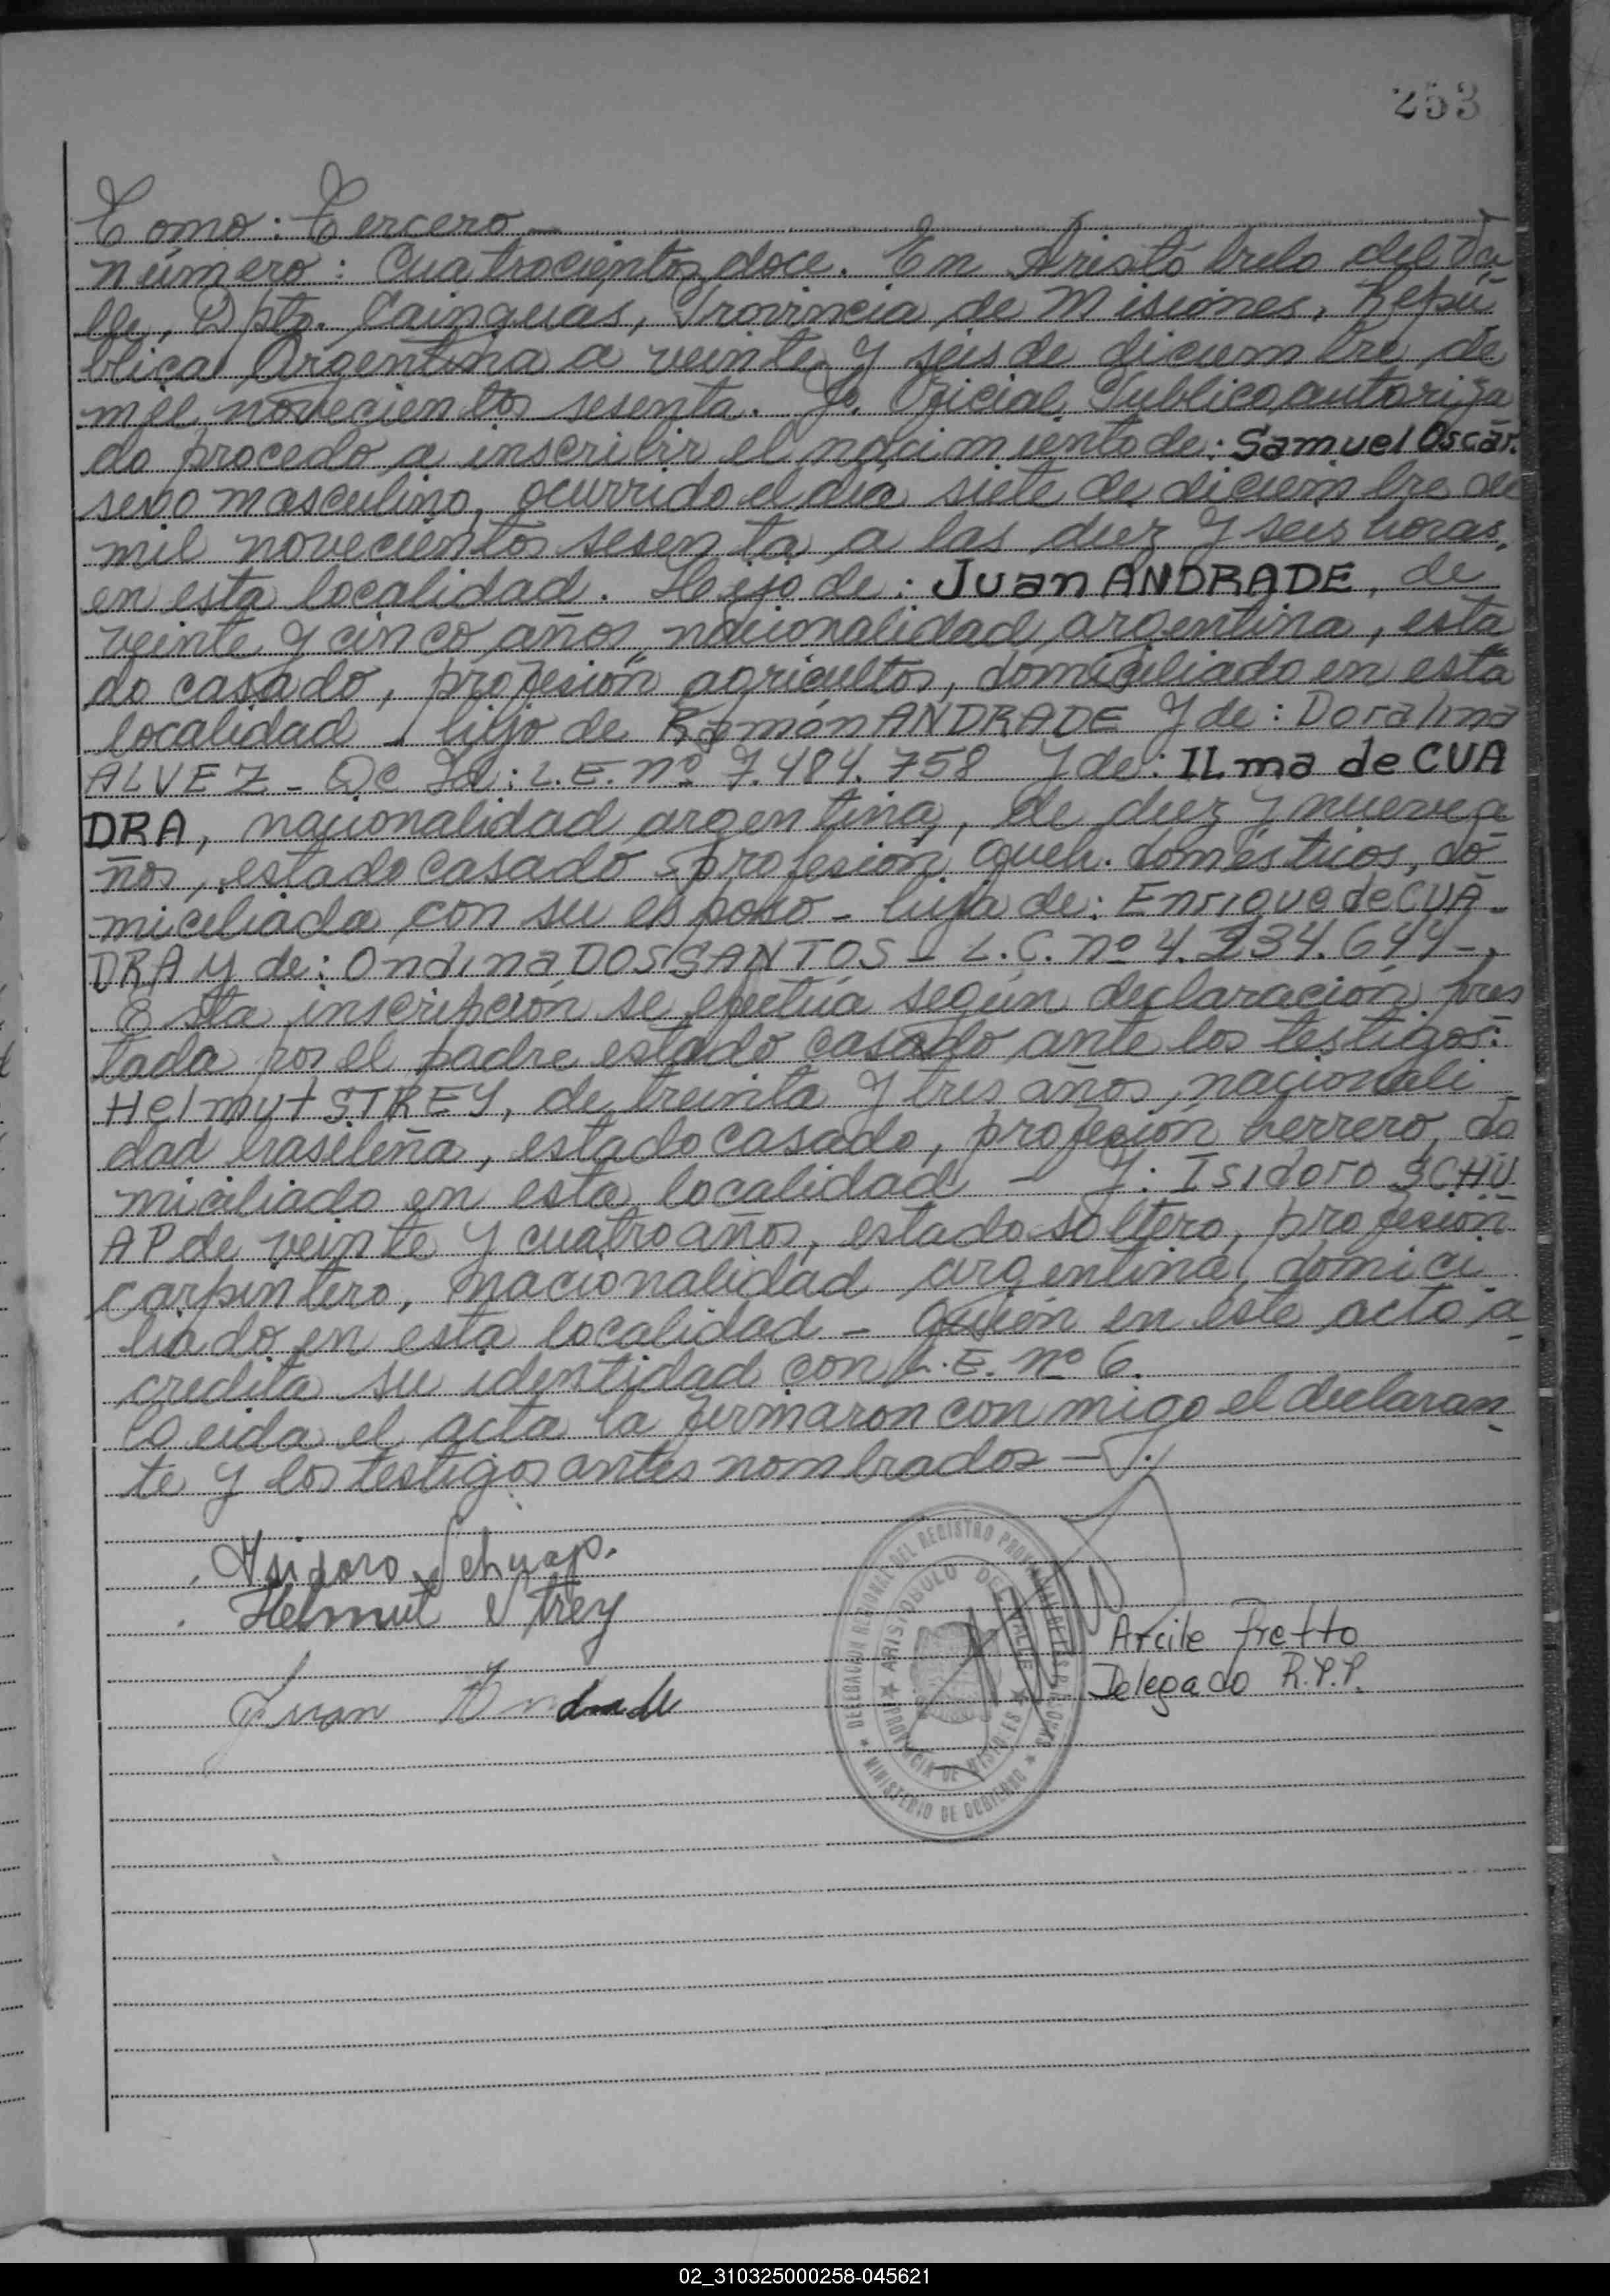 253
Tomo: Tercero -
número: Cuatrocientos doce. En Aristó bulo del Va
lle, Dpto. Cainguas, Provincia de Misiones, Repú
blica Argentina a veinte y seis de diciembre de
mil novecientos sesenta. Yo. Oficial Publico autoriza
do procedo a inscribir el nacimiento de: Samuel Oscar.
sexo masculino, ocurrido el día siete de diciembre de
mil novecientos sesenta a las diez y seis horas,
en esta localidad. Hijo de: Juan ANDRADE, de
veinte y cinco años, nacionalidad argentina, esta
do casado, profesión agricultor, domiciliado en esta
localidad - hijo de Ramón ANDRADE y de: Doralina
ALVEZ - Dc Id: L.E. nº 7.484.758 y de: ILma de CUA
DRA, nacionalidad argentina, de diez y nueve a
ños, estado casado profesión queh. domésticos, do
miciliada con su esposo - hija de: Enrique de CUA-
DRA y de: Ondina DOS SANTOS - L.C. nº 4.234.644 -,
Esta inscripción se efectúa según declaración pres
tada por el padre estado casado ante los testigos:
Helmut STREY, de treinta y tres años, nacionali
dad brasileña, estado casado, profesión herrero, do
miciliado en esta localidad - Y. Isidoro SCHU
AP de veinte y cuatro años, estado soltero, profesion
carpintero, nacionalidad argentina, domici
liado en esta localidad - quién en este acto a
credita su identidad con L.E. nº 6.
Leida el acta la firmaron con migo el declaran
te y los testigos antes nombrados -
Isidoro Schuap.
Helmut Strey
Juan Andrade
DELEGACION REGIONAL DEL REGISTRO PROVINCIAL DE LAS PERSONAS
ARISTOBULO DEL VALLE
PROVINCIA DE MISIONES
MINISTERIO DE GOBIERNO
Arcile Fretto
Delegado R.P.P.
02_310325000258-045621